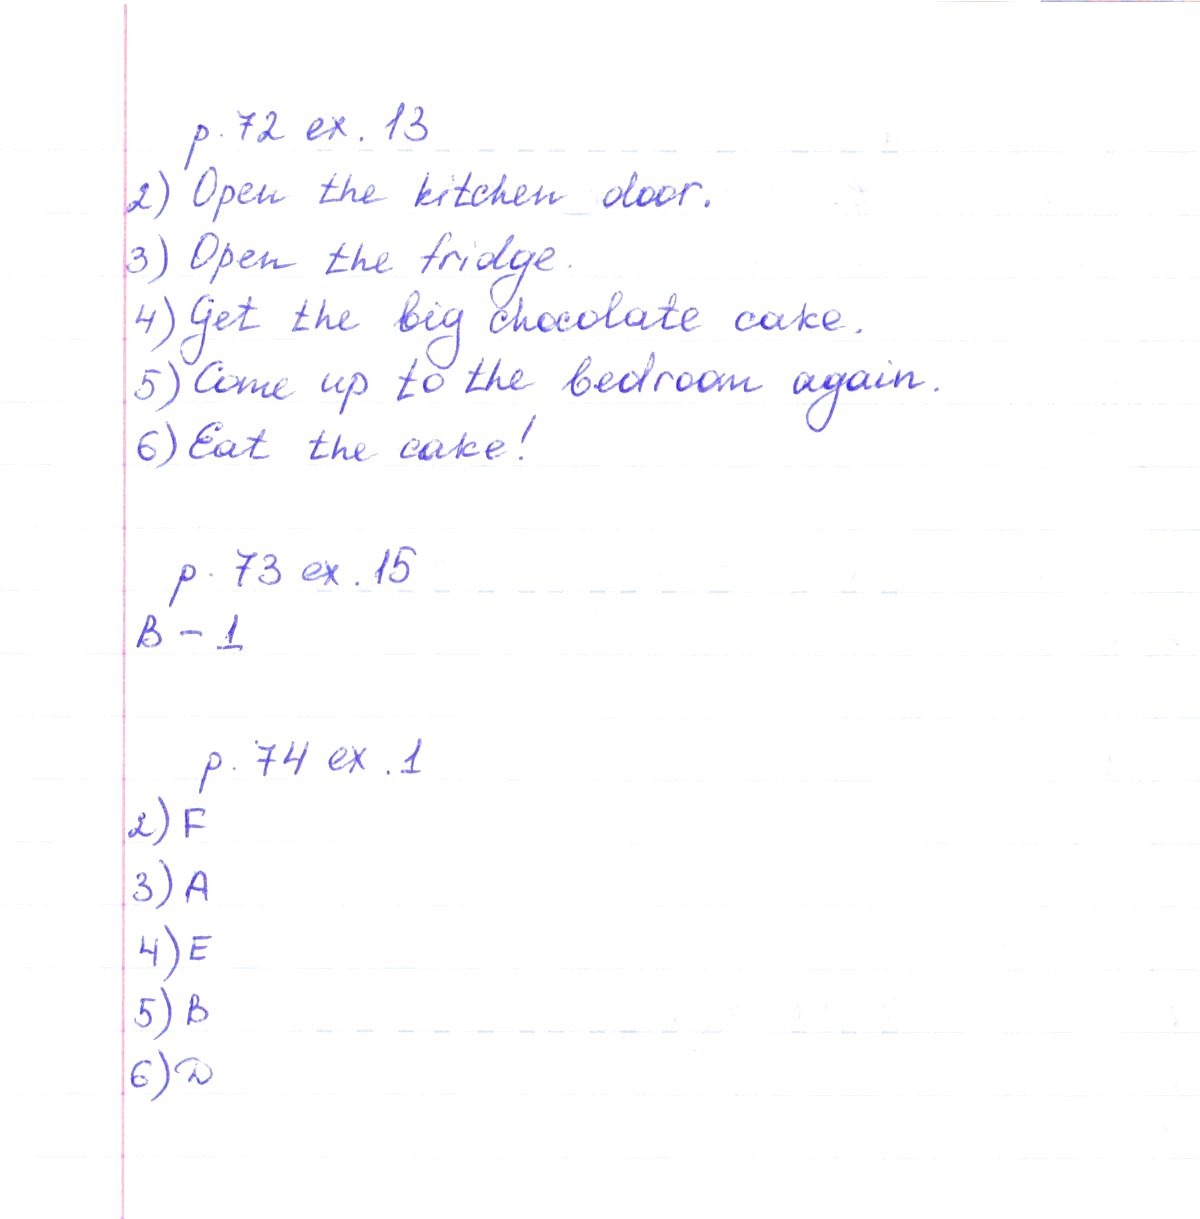 p. 72 ex. 13
2) Open the kitchen door.
3) Open the fridge.
4) Get the big chocolate cake.
5) Come up to the bedroom again.
6) Eat the cake!
p. 73 ex. 15
B - 1
p. 74 ex. 1
2) F
3) A
4) E
5) B
6) D